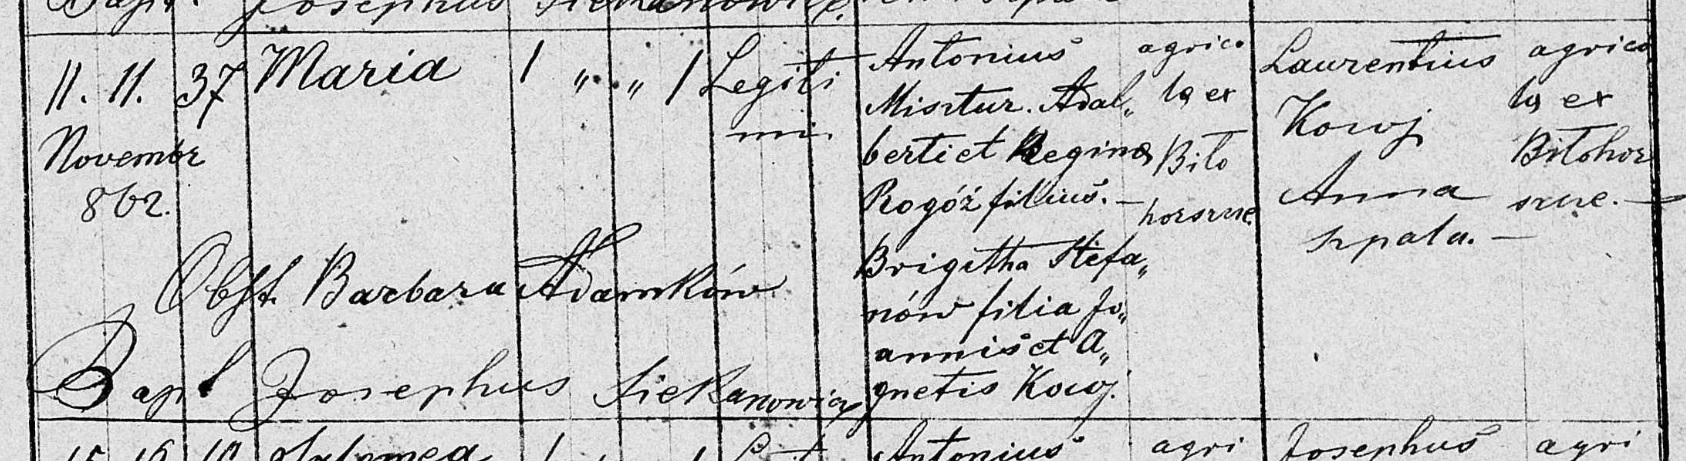 Bapt. Josephus Siekanowicz
11. 11. 37 Maria 1 „ „ 1 Legiti
mi.
Novembr
862.
Antonius
Misztur. Adal„
berti et Reginæ
Rogóż filius. —
Brigitha Stefa„
nów filia Jo„
annis et A„
gnetis Kowj.
agrico
la ex
Biło
horszcze
Laurentius
Kowj
Anna
Szpala. —
agrico
la ex
Biłohor
szcze. —
Obst. Barbara Adamków
Bapt Josephus Siekanowicz
15 16 Salomea 1
Antonius agri Josephus agri